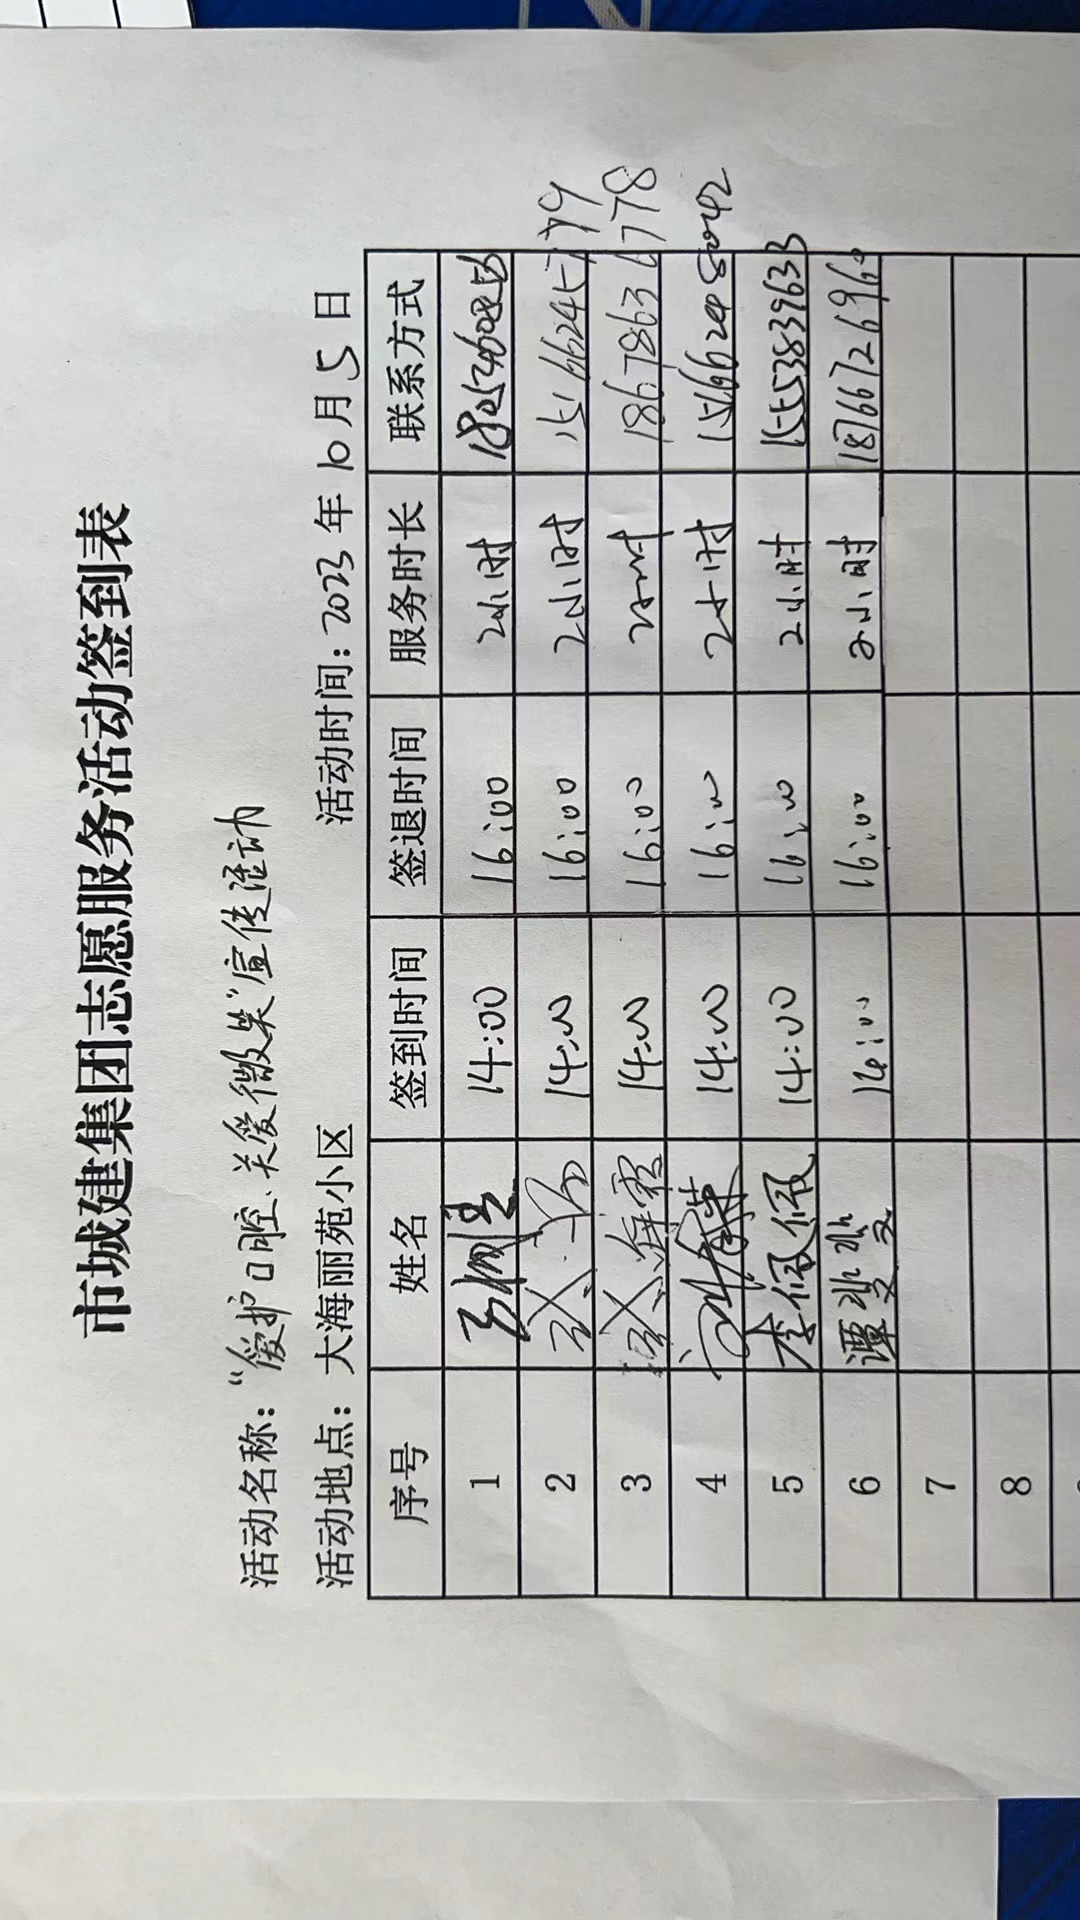 市城建集团志愿服务活动签到表
活动名称：“爱护口腔、关爱微笑”宣传活动
活动地点：大海丽苑小区 活动时间：2023年10月5日
序号 姓名 签到时间 签退时间 服务时长 联系方式
1 14:00 16:00 2小时
2 14:00 16:00 2小时
3 14:00 16:00 2小时 18678636778
4 14:00 16:00 2小时
5 李佩佩 14:00 16:00 2小时 1553839633
6 谭翠翠 14:00 16:00 2小时
7
8